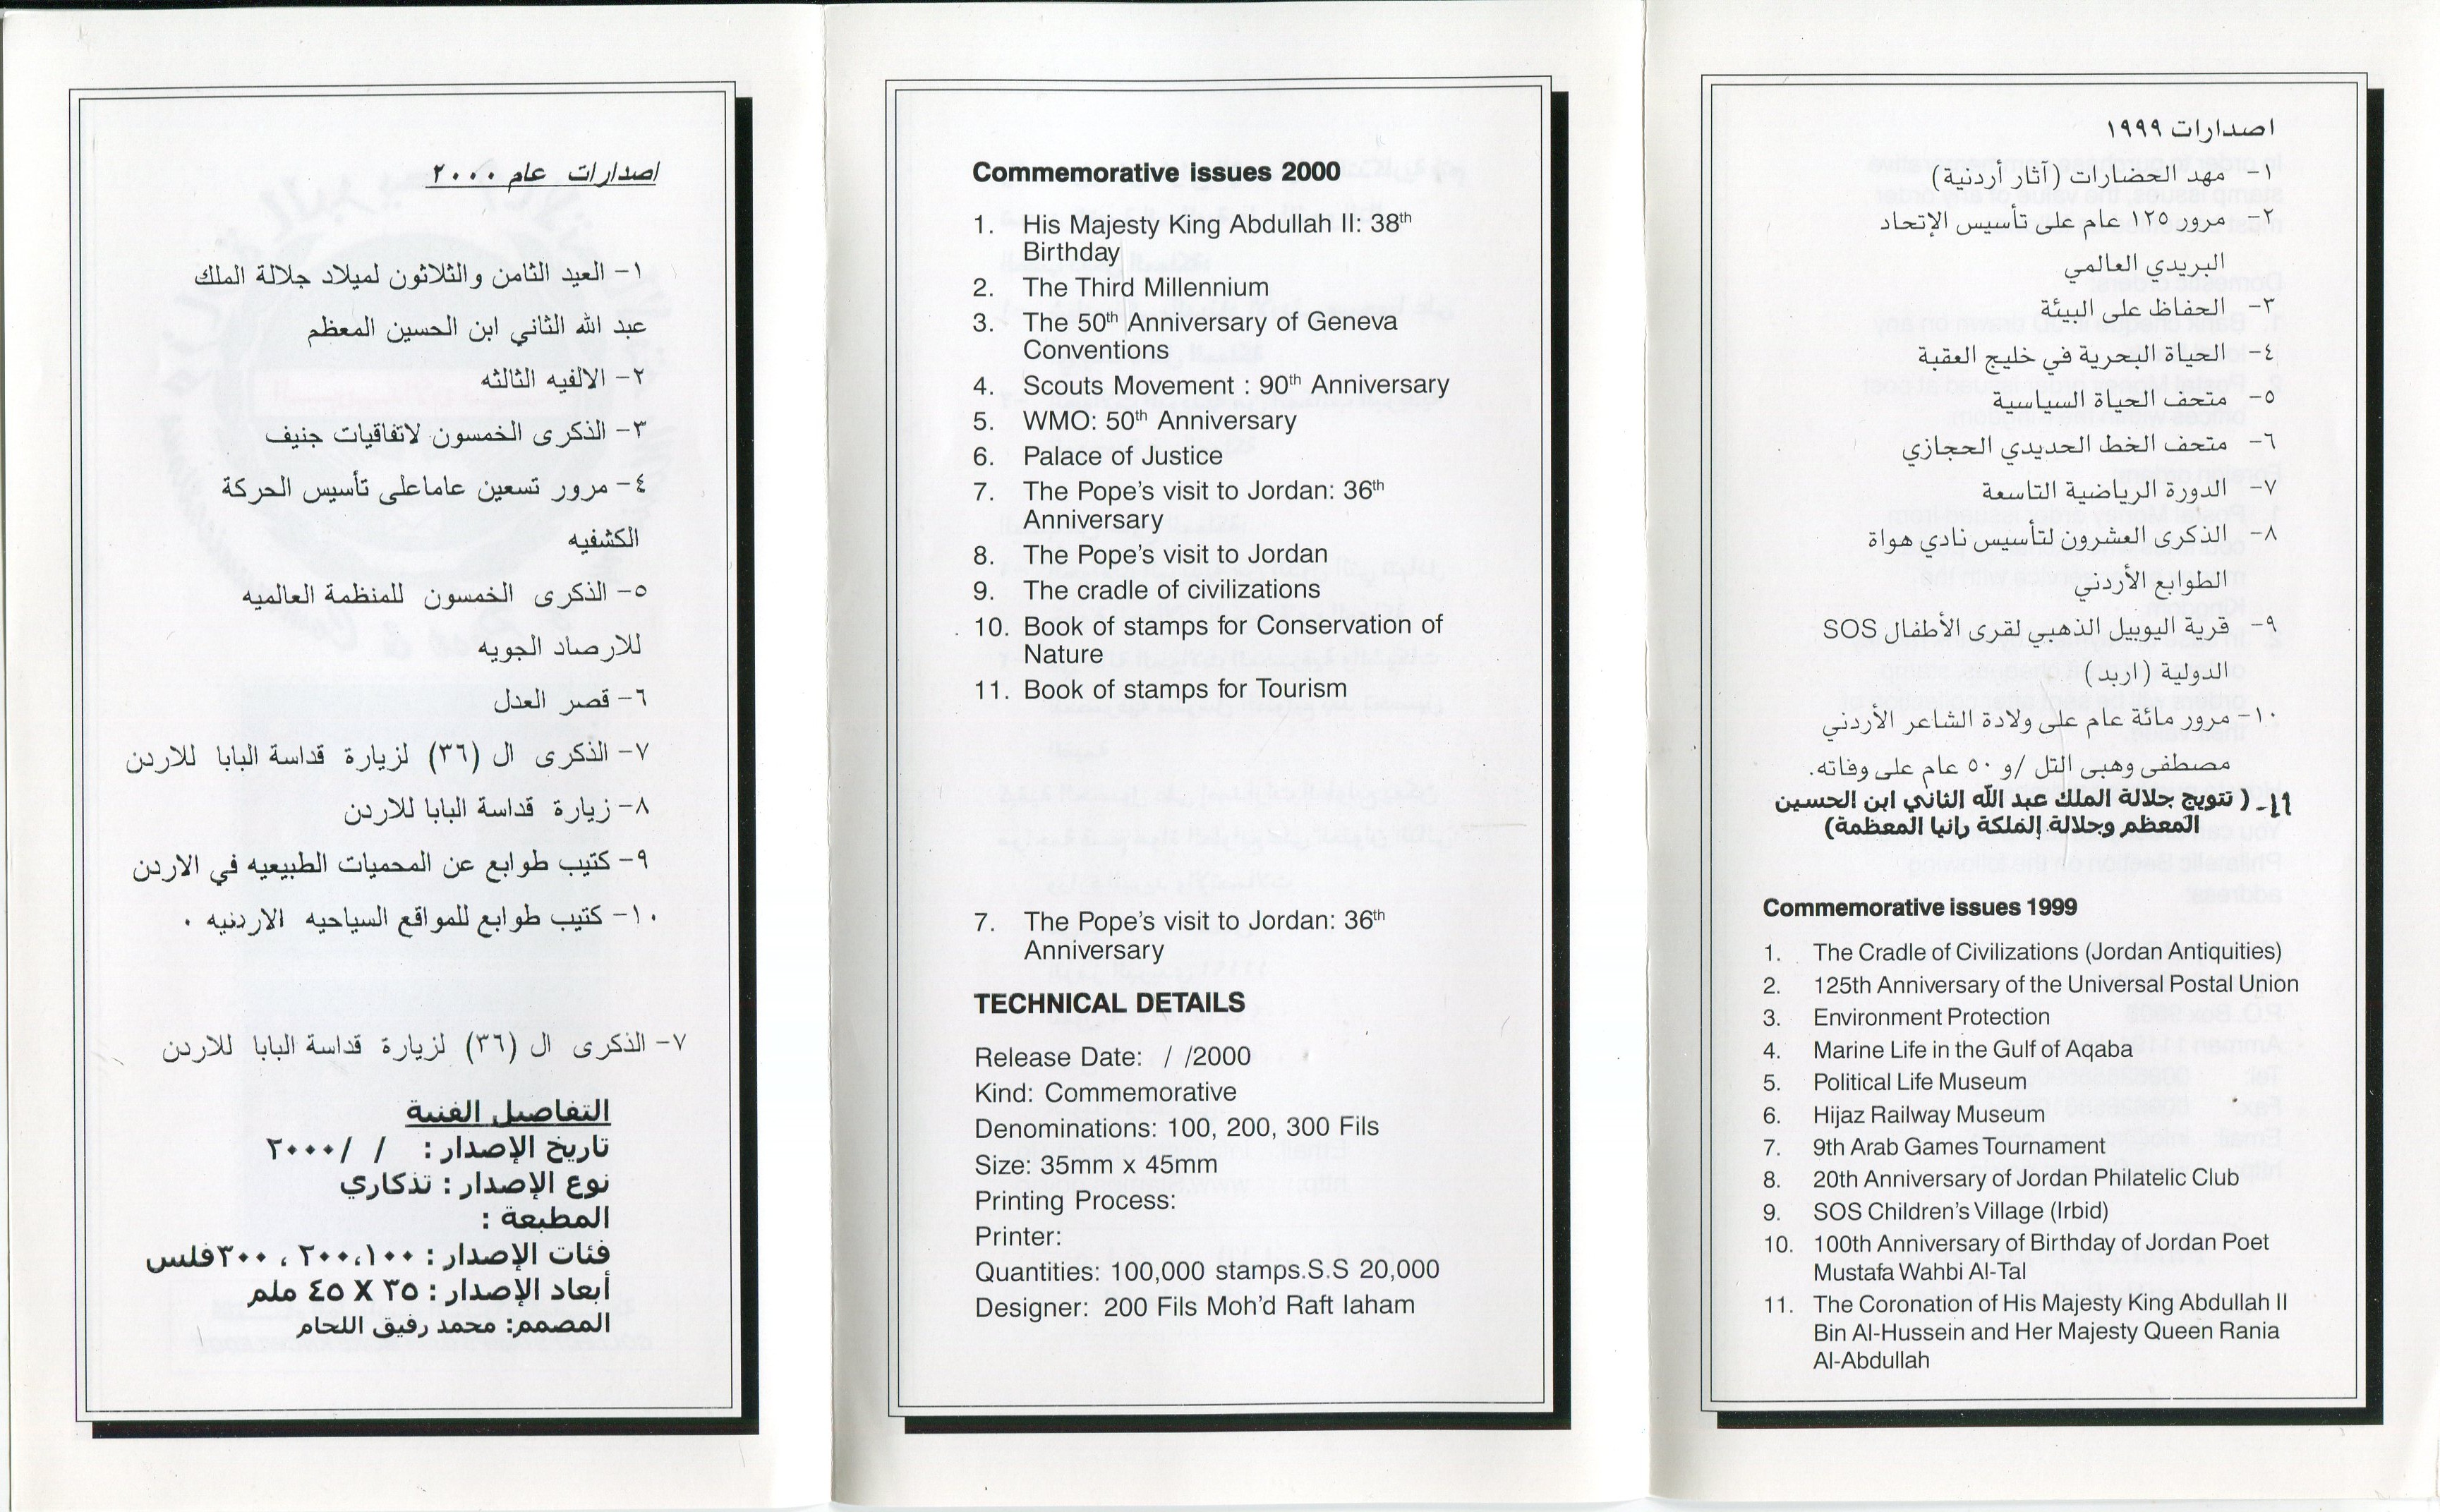 اصدارات عام ٢٠٠٠
١- العيد الثامن والثلاثون لميلاد جلالة الملك
عبد الله الثاني ابن الحسين المعظم
٢- الالفيه الثالثه
٣- الذكرى الخمسون لاتفاقيات جنيف
٤- مرور تسعين عاماعلى تأسيس الحركة
الكشفيه
٥- الذكرى الخمسون للمنظمة العالميه
للارصاد الجويه
٦- قصر العدل
٧- الذكرى ال (٣٦) لزيارة قداسة البابا للاردن
٨- زيارة قداسة البابا للاردن
٩- كتيب طوابع عن المحميات الطبيعيه في الاردن
١٠- كتيب طوابع للمواقع السياحيه الاردنيه ٠
٧- الذكرى ال (٣٦) لزيارة قداسة البابا للاردن
التفاصيل الفنية
تاريخ الإصدار : / /٢٠٠٠
نوع الإصدار : تذكاري
المطبعة :
فئات الإصدار : ٢٠٠،١٠٠ ، ٣٠٠فلس
أبعاد الإصدار : ٣٥ X ٤٥ ملم
المصمم: محمد رفيق اللحام
Commemorative issues 2000
1. His Majesty King Abdullah II: 38th
Birthday
2. The Third Millennium
3. The 50th Anniversary of Geneva
Conventions
4. Scouts Movement : 90th Anniversary
5. WMO: 50th Anniversary
6. Palace of Justice
7. The Pope's visit to Jordan: 36th
Anniversary
8. The Pope's visit to Jordan
9. The cradle of civilizations
10. Book of stamps for Conservation of
Nature
11. Book of stamps for Tourism
7. The Pope's visit to Jordan: 36th
Anniversary
TECHNICAL DETAILS
Release Date: / /2000
Kind: Commemorative
Denominations: 100, 200, 300 Fils
Size: 35mm x 45mm
Printing Process:
Printer:
Quantities: 100,000 stamps.S.S 20,000
Designer: 200 Fils Moh'd Raft laham
اصدارات ١٩٩٩
١- مهد الحضارات (آثار أردنية)
٢- مرور ١٢٥ عام على تأسيس الإتحاد
البريدي العالمي
٣- الحفاظ على البيئة
٤- الحياة البحرية في خليج العقبة
٥- متحف الحياة السياسية
٦- متحف الخط الحديدي الحجازي
٧- الدورة الرياضية التاسعة
٨- الذكرى العشرون لتأسيس نادي هواة
الطوابع الأردني
٩- قرية اليوبيل الذهبي لقرى الأطفال SOS
الدولية (اربد)
١٠- مرور مائة عام على ولادة الشاعر الأردني
مصطفى وهبي التل /و ٥٠ عام على وفاته.
١١- ( تتويج جلالة الملك عبد الله الثاني ابن الحسين
المعظم وجلالة الملكة رانيا المعظمة)
Commemorative issues 1999
1. The Cradle of Civilizations (Jordan Antiquities)
2. 125th Anniversary of the Universal Postal Union
3. Environment Protection
4. Marine Life in the Gulf of Aqaba
5. Political Life Museum
6. Hijaz Railway Museum
7. 9th Arab Games Tournament
8. 20th Anniversary of Jordan Philatelic Club
9. SOS Children's Village (Irbid)
10. 100th Anniversary of Birthday of Jordan Poet
Mustafa Wahbi Al-Tal
11. The Coronation of His Majesty King Abdullah II
Bin Al-Hussein and Her Majesty Queen Rania
Al-Abdullah